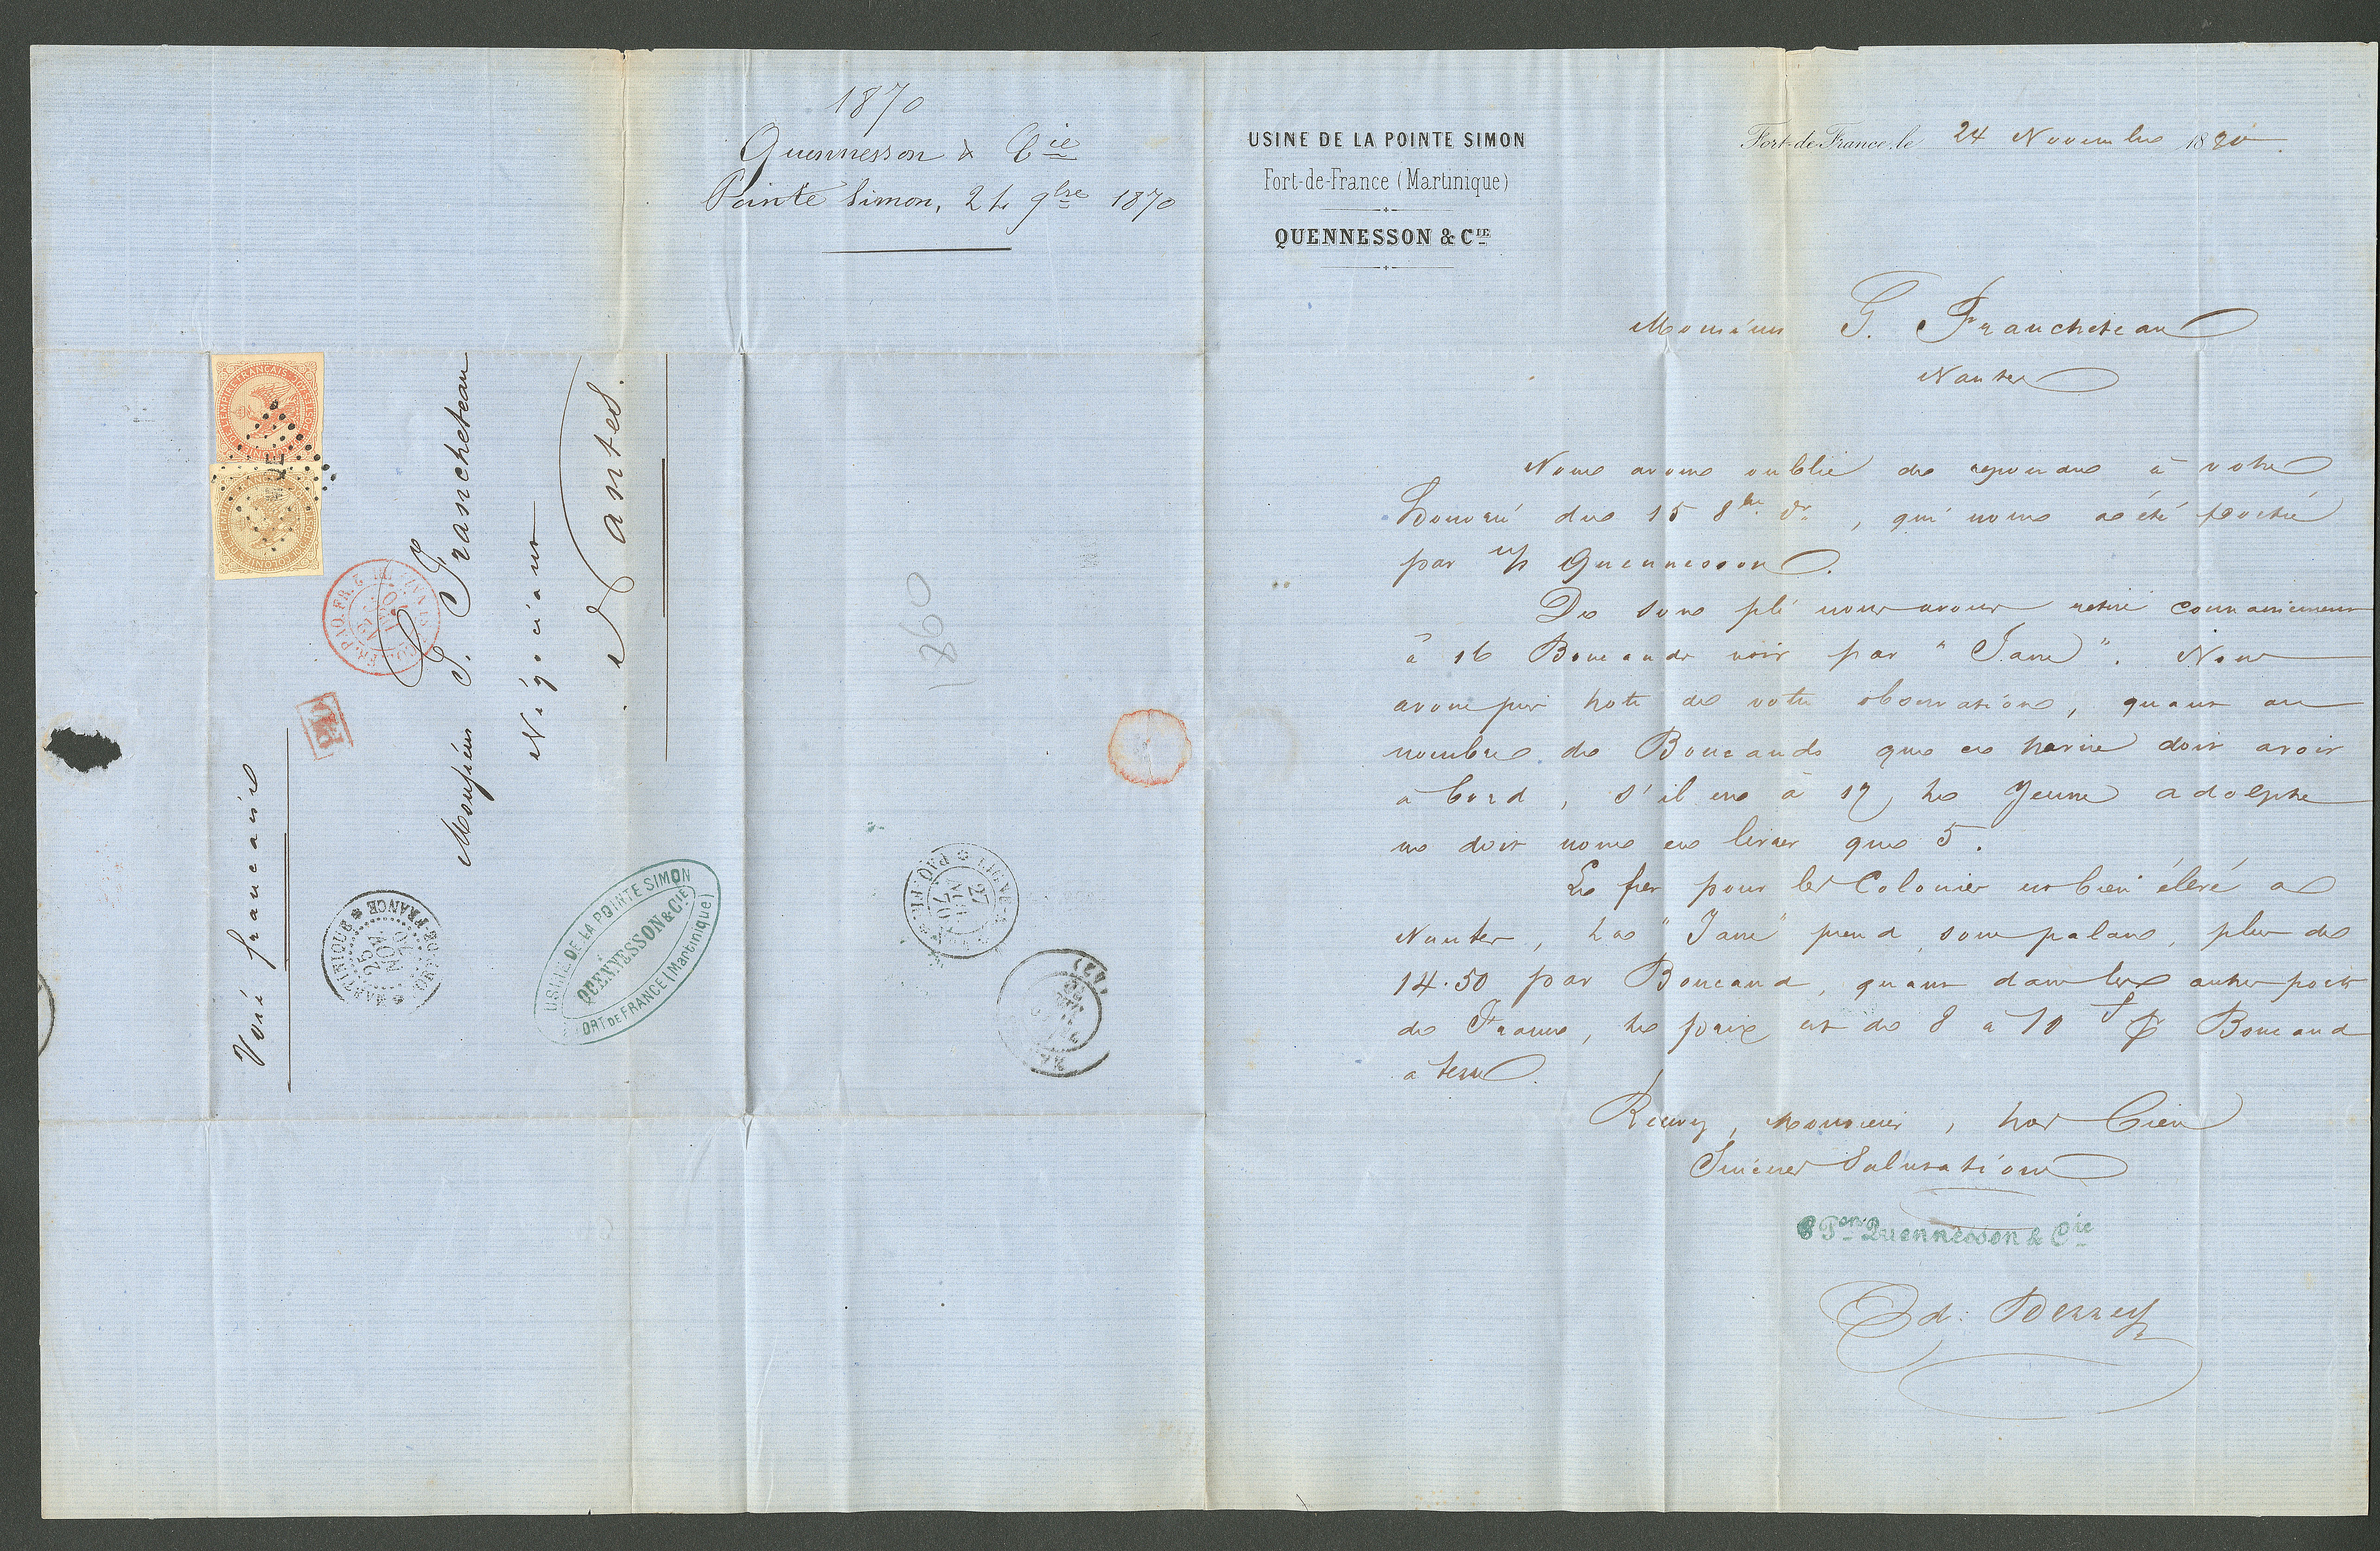 1870
Quennesson & Cie
Pointe Simon, 24 9bre 1870
Voie française
Monsieur G. Francheteau
Négociant
Nantes.
COL. FR. PAQ. FR. 2
PD
MARTINIQUE
25
NOV.
70
FORT-DE-FRANCE
USINE DE LA POINTE SIMON
QUENNESSON & CIE
FORT DE FRANCE (Martinique)
1890
LIGNE
PAQ. FR.
27
NOV.
70
(42)
USINE DE LA POINTE SIMON
Fort-de-France (Martinique)
QUENNESSON & CIE
Fort-de-France, le 24 Novembre 1870
Monsieur G. Francheteau
Nantes
Nous avons oublié de repondre à votre
honoré du 15 8bre dr, qui nous a été porté
par Mr Quennesson.
De sous pli nous avons retiré connaissement
à 16 Boucauds noir par "Jane". Nous
avons pris note de votre observation, quant au
nombre de Boucauds que ce navire doit avoir
à bord, s'il en a 17 le Jeune Adolphe
ne doit nous en livrer que 5.
Le fret pour les Colonies est bien élevé a
Nantes, La "Jane" prend sous palan, plus de
14.50 par Boucaud, quant dans les autres ports
de France, le prix est de 8 a 10 f Boucaud
a terre.
Recevez, Monsieur, nos bien
Sincères Salutations
Pon Quennesson & Cie
Ed: